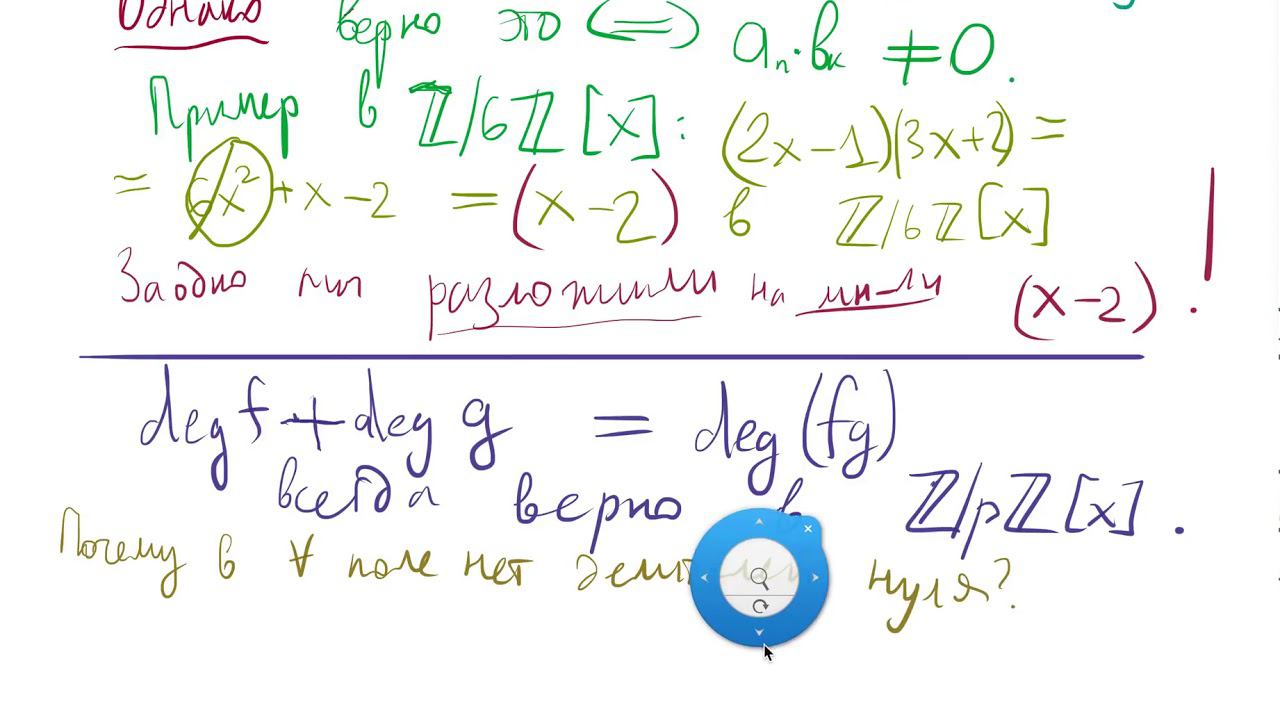 Однако верно это <=> aₙ·bₖ ≠ 0.
Пример в ℤ/6ℤ[x]: (2x−1)(3x+2) =
= 6x² + x − 2 = (x−2) в ℤ/6ℤ[x]
Заодно мы разложили на мн-ли (x−2). !
deg f + deg g = deg(fg)
всегда верно в ℤ/pℤ[x].
Почему в ∀ поле нет делителей нуля?